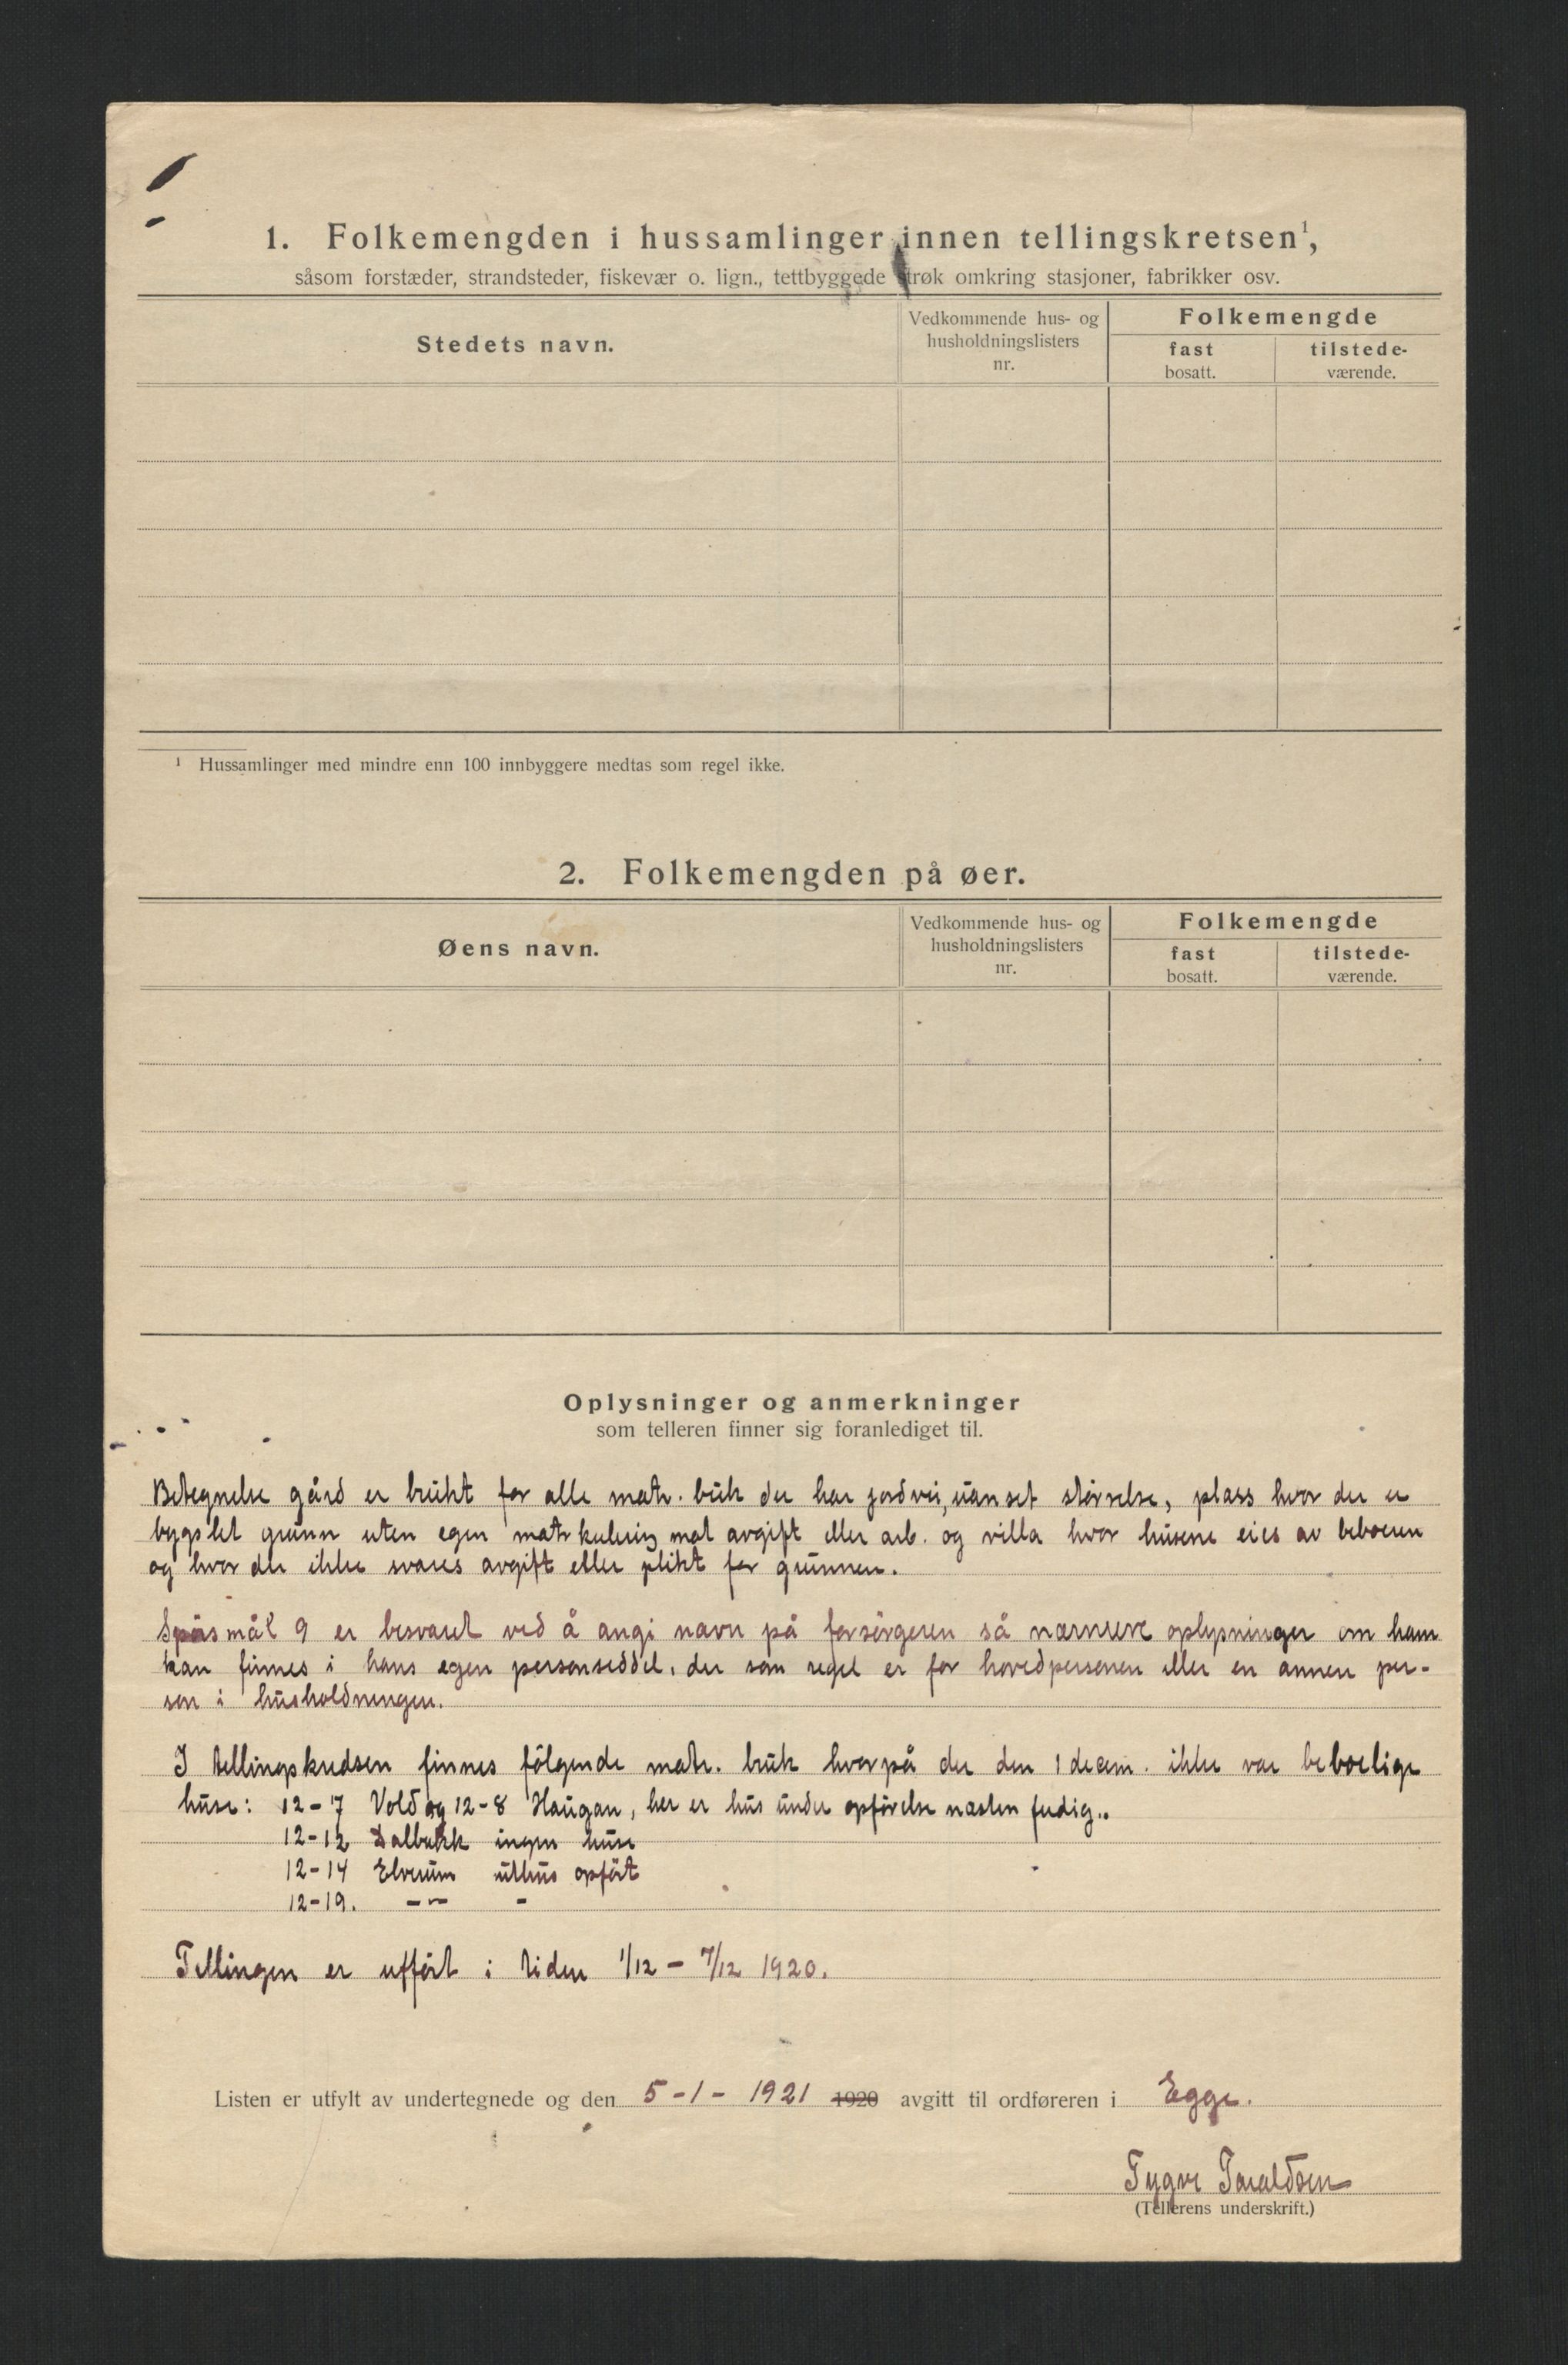 1. Folkemengden i hussamlinger innen tellingskretsen¹,
såsom forstæder, strandsteder, fiskevær o. lign., tettbyggede strøk omkring stasjoner, fabrikker osv.
Stedets navn.
Vedkommende hus- og
husholdningslisters
nr.
Folkemengde
fast
bosatt.
tilstede-
værende.
¹ Hussamlinger med mindre enn 100 innbyggere medtas som regel ikke.
2. Folkemengden på øer.
Øens navn.
Vedkommende hus- og
husholdningslisters
nr.
Folkemengde
fast
bosatt.
tilstede-
værende.
Oplysninger og anmerkninger
som telleren finner sig foranlediget til.
Betegnelse gård er brukt for alle matr. bruk der har jordvei, uanset størrelse, plass hvor der er
bygslet grunn uten egen matrkulering mot avgift eller arb. og villa hvor husene eies av beboeren
og hvor der ikke svares avgift eller plikt for grunnen.
Spørsmål 9 er besvaret ved å angi navn på forsørgeren så nærmere oplysninger om ham
kan finnes i hans egen personseddel, der som regel er for hovedpersonen eller en annen per-
son i husholdningen.
I tellingskredsen finnes følgende matr. bruk hvorpå der den 1 decem. ikke var beboelige
huse: 12-7 Vold og 12-8 Haugan, her er hus under opførelse næsten ferdig..
12-12 Dalbækk ingen huse
12-14 Elverum uthus opført
12-19. -"- -
Tellingen er utført i tiden 1/12 - 7/12 1920.
Listen er utfylt av undertegnede og den 5-1-1921 1920 avgitt til ordføreren i Egge.
Trygve Taraldsen
(Tellerens underskrift.)